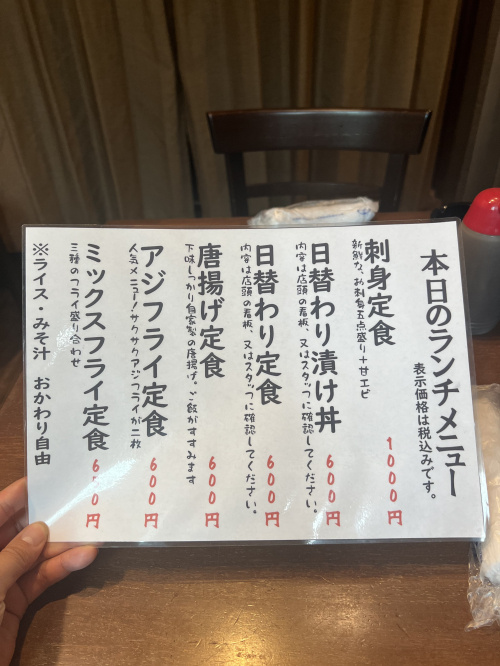 本日のランチメニュー
表示価格は税込みです。
刺身定食
新鮮な、お刺身五点盛り＋甘エビ
1000円
日替わり漬け丼
内容は店頭の看板、又はスタッフに確認してください。
600円
日替わり定食
内容は店頭の看板、又はスタッフに確認してください。
600円
唐揚げ定食
下味しっかり自家製の唐揚げ。ご飯がすすみます
600円
アジフライ定食
人気メニュー！サクサクアジフライが二枚
600円
ミックスフライ定食
三種のフライ盛り合わせ
650円
※ライス・みそ汁　おかわり自由